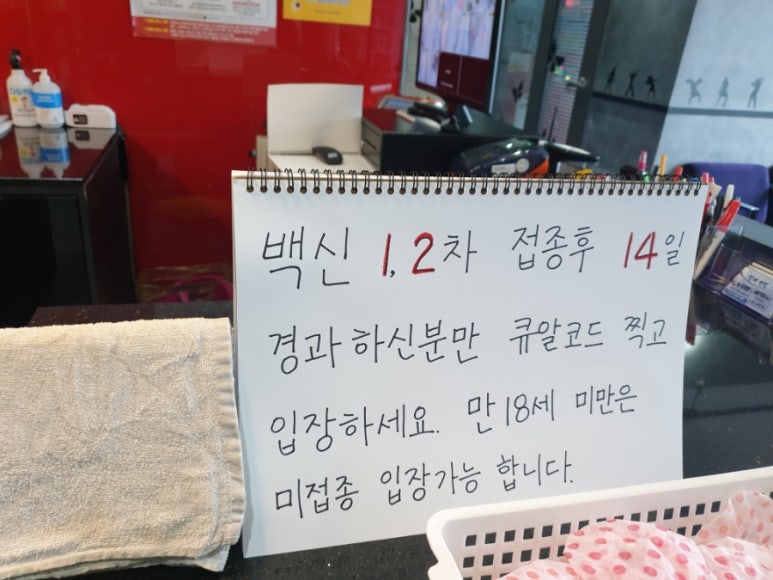 백신 1, 2차 접종후 14일
경과하신분만 큐알코드 찍고
입장하세요. 만 18세 미만은
미접종 입장가능 합니다.